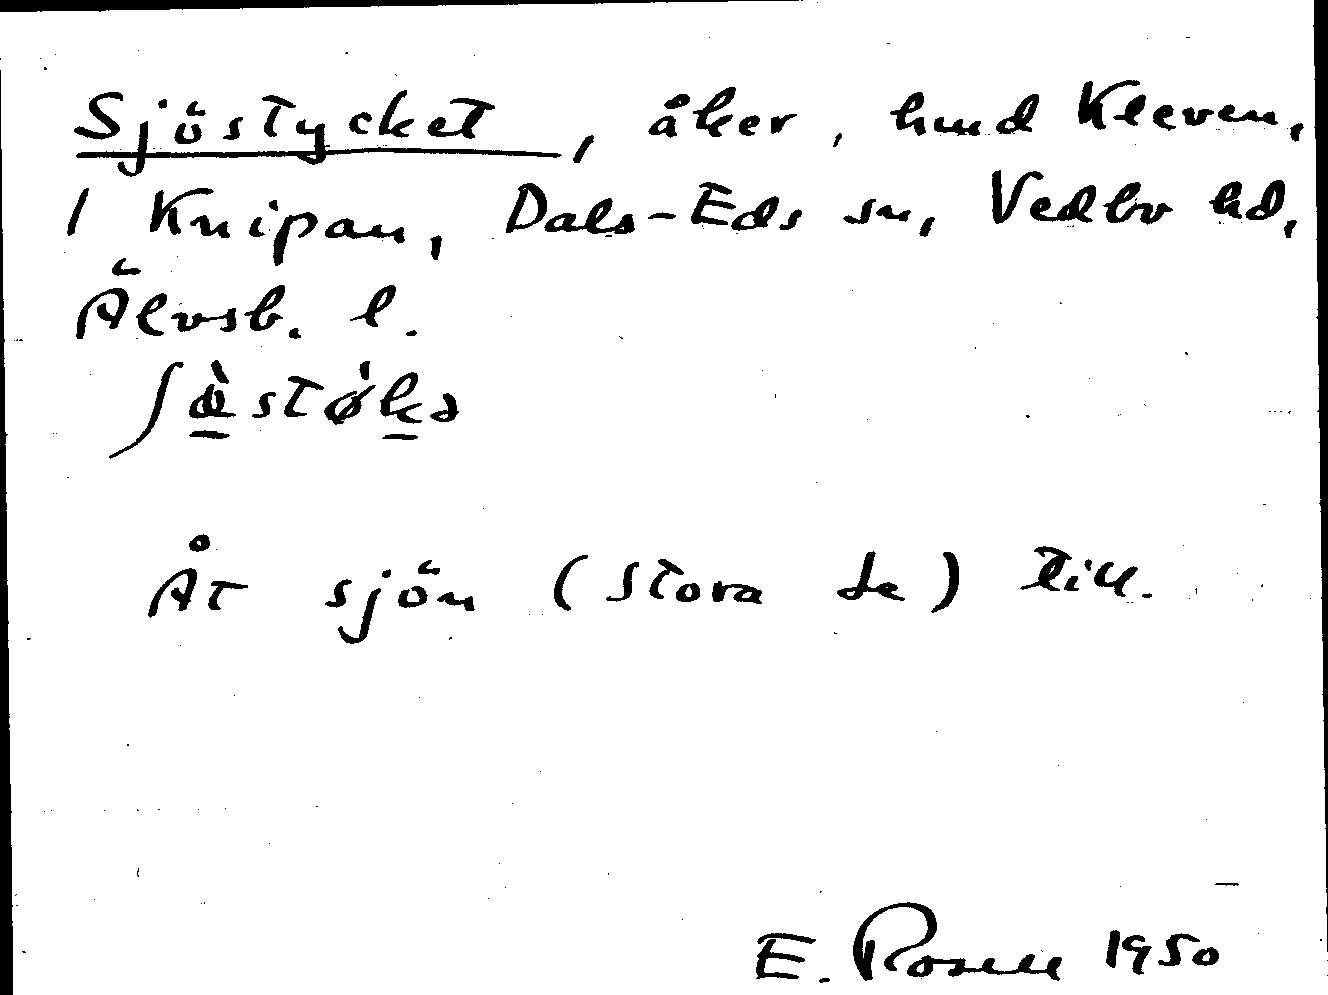 Sjöstycket, åker, hmd Kleven,
1 Knipan, Dals-Eds sn, Vedbo hd,
Älvsb. l.
Åt sjön (Stora Le) till.
E. Rosell 1950